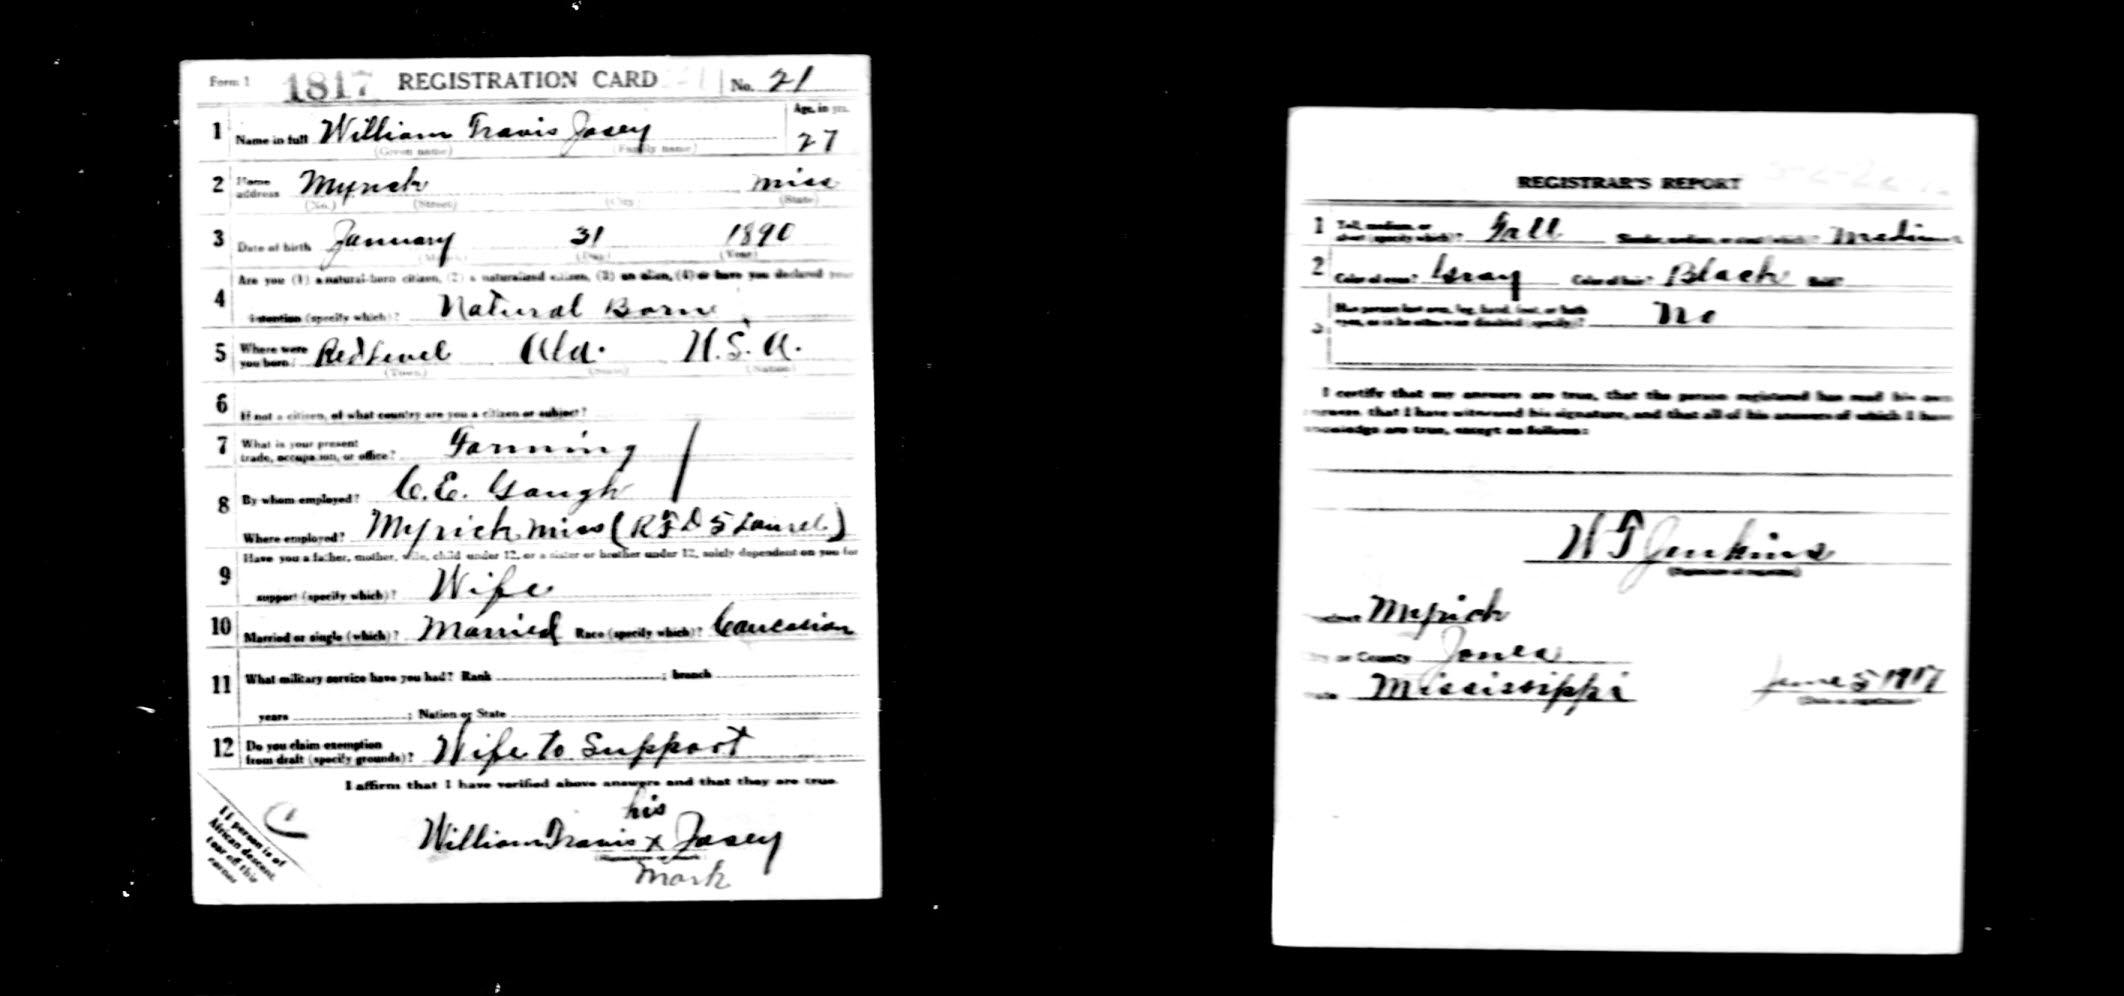 Form 1 1817 REGISTRATION CARD No. 21
Age, in yrs.
1 Name in full William Travis Josey 27
(Given name) (Family name)
2 Home address Myrick Miss
(No.) (Street) (City) (State)
3 Date of birth January 31 1890
(Month) (Day) (Year)
Are you (1) a natural-born citizen, (2) a naturalized citizen, (3) an alien, (4) or have you declared your
4 intention (specify which)? Natural Born
5 Where were you born? Red Level Ala. U.S.A.
(Town) (State) (Nation)
6 If not a citizen, of what country are you a citizen or subject?
7 What is your present trade, occupation, or office? Farming
8 By whom employed? C.E. Gough
Where employed? Myrick Miss (RFD 5 Laurel)
Have you a father, mother, wife, child under 12, or a sister or brother under 12, solely dependent on you for
9 support (specify which)? Wife
10 Married or single (which)? Married Race (specify which)? Caucasion
11 What military service have you had? Rank ; branch
years ; Nation or State
12 Do you claim exemption from draft (specify grounds)? Wife to Support
I affirm that I have verified above answers and that they are true.
his
William Travis x Josey
(Signature or mark)
Mark
If person is of
African descent,
tear off this
corner
REGISTRAR'S REPORT
1 Tall, medium, or short (specify which)? Tall Slender, medium, or stout (which)? Medium
2 Color of eyes? Gray Color of hair? Black Bald?
3 Has person lost arm, leg, hand, foot, or both eyes, or is he otherwise disabled (specify)? No
I certify that my answers are true, that the person registered has read his own
answers, that I have witnessed his signature, and that all of his answers of which I have
knowledge are true, except as follows:
W T Jenkins
(Signature of registrar)
Precinct Myrick
City or County Jones
State Mississippi June 5 1917
(Date of registration)